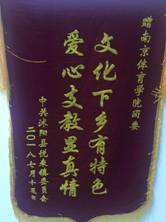 赠南京体育学院团委
文化下乡有特色
爱心支教显真情
中共沭阳县悦来镇委员会
二〇一八七月十五日